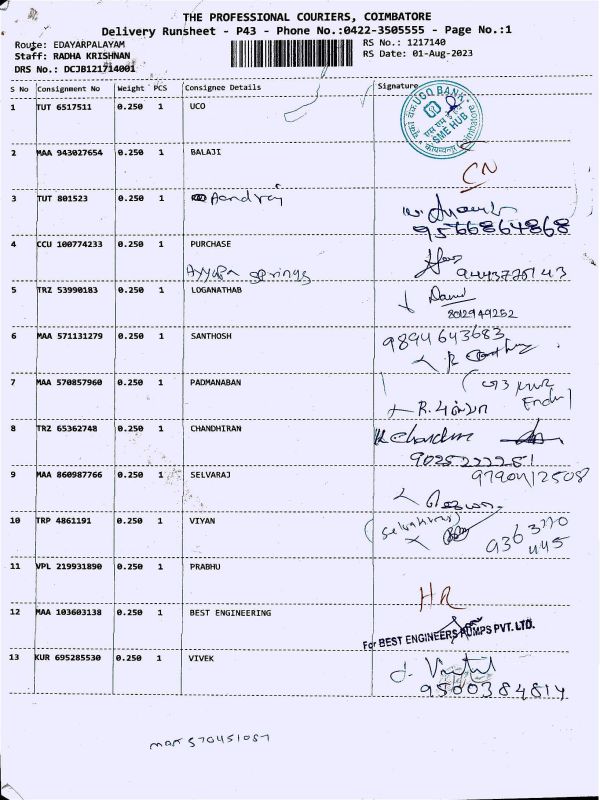 THE PROFESSIONAL COURIERS, COIMBATORE
Delivery Runsheet - P43 - Phone No.:0422-3505555 - Page No.:1
Route: EDAYARPALAYAM RS No.: 1217140
Staff: RADHA KRISHNAN RS Date: 01-Aug-2023
DRS No.: DCJB121714001
S No Consignment No Weight PCS Consignee Details Signature
1 TUT 6517511 0.250 1 UCO
UCO BANK
SME HUB
2 MAA 943027654 0.250 1 BALAJI
CN
3 TUT 801523 0.250 1
9566864868
4 CCU 100774233 0.250 1 PURCHASE
Ayyapa Springs
5 TRZ 53990183 0.250 1 LOGANATHAB
8012949252
6 MAA 571131279 0.250 1 SANTHOSH
9894643683
7 MAA 570857960 0.250 1 PADMANABAN
8 TRZ 65362748 0.250 1 CHANDHIRAN
9025222251
9 MAA 860987766 0.250 1 SELVARAJ
9790412508
10 TRP 4861191 0.250 1 VIYAN
9363770
445
11 VPL 219931890 0.250 1 PRABHU
HR
12 MAA 103603138 0.250 1 BEST ENGINEERING
For BEST ENGINEERS PUMPS PVT. LTD.
13 KUR 695285530 0.250 1 VIVEK
9500384814